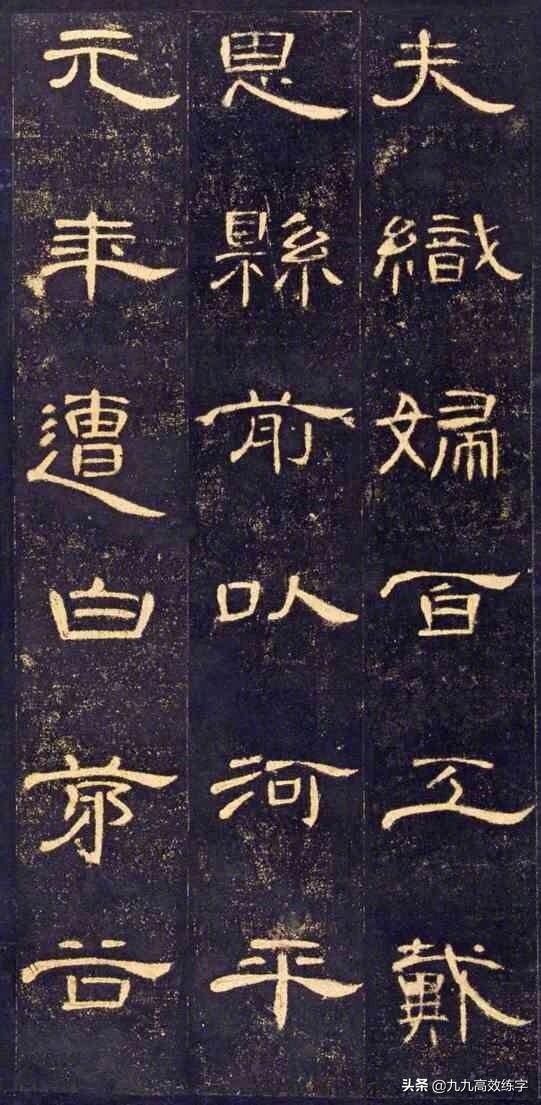 夫織婦百工戴
恩縣前以河平
元年遭白茅谷
头条@九九高效练字